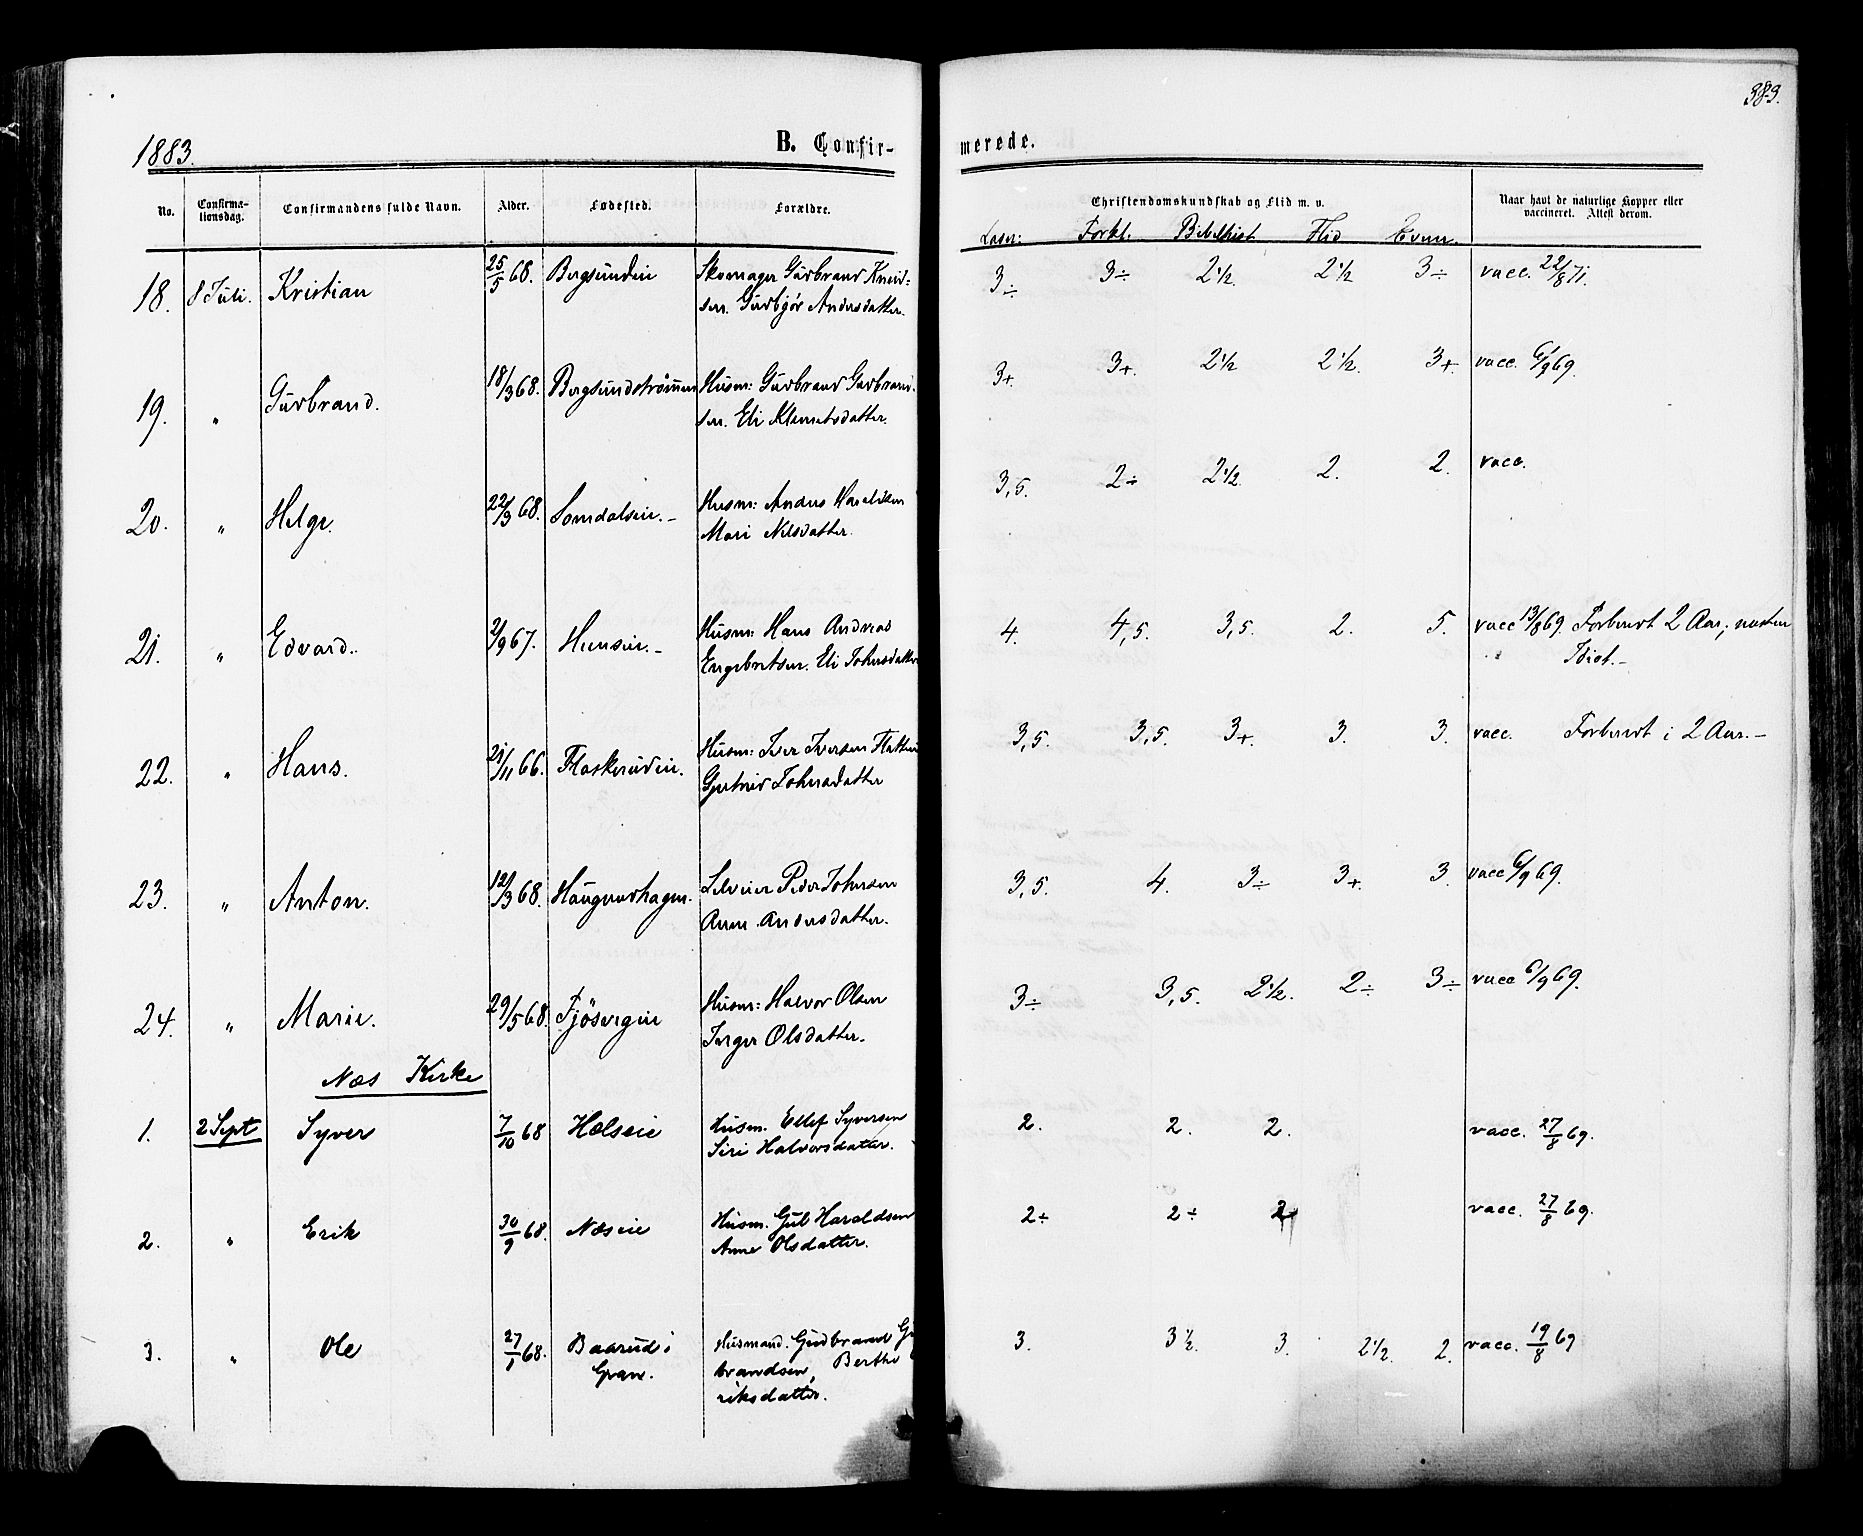 383.
1883.
B. Confir-
merede.
No.
Confirma-
tionsdag.
Confirmandens fulde Navn.
Alder.
Fødested.
Forældre.
Christendomskundskab og Flid m. v.
Naar havt de naturlige Kopper eller
vaccineret. Attest derom.
Læsn: Forkl: Bibelhist. Flid Evner.
18. 8 Juli. Kristian 25/5 68. Bergsundeie Skomager Gudbrand Knud-
sen. Gudbjør Andersdatter.
3÷ 3÷ 2 1/2. 2 1/2 3÷ vacc. 22/8 71.
19. " Gudbrand. 18/3 68. Bergsundstrømmen Husm: Gudbrand Gudbrand-
sen. Eli Klemetsdatter.
3+. 3+. 2 1/2 2 1/2. 3+. vacc. 6/9 69.
20. " Helge. 22/3 68. Somdalseie.- Husm: Anders Haraldsen
Mari Nilsdatter.
3,5. 2÷ 2 1/2. 2. 2. vacc.
21. " Edvard. 2/9 67. Hunseie.- Husm: Hans Andreas
Engebretsen. Eli Johnsdatter
4. 4,5. 3,5. 2. 5. vacc 13/8 69. Forberedt 2 Aar; næsten
Idiot.-
22. " Hans. 21/11 66. Flaskerudeie. Husm: Iver Iversen
Gjertrud Johnsdatter
3,5. 3,5. 3+. 3. 3. vacc. Forberedt i 2 Aar.-
23. " Anton. 12/3 68. Haugerudhagen. Selveier Peder Johnsen
Anne Andersdatter.
3,5. 4. 3÷ 3+. 3. vacc 6/9 69.
24. " Marie. 29/5 68. Fjøsvigeie Husm: Halvor Olsen
Inger Olsdatter.
3÷ 3,5. 2 1/2. 2÷ 3÷ vacc 6/9 69.
Næs Kirke
1. 2 Sept Syver 7/10 68 Hølseie Husm. Ellef Syversen
Siri Halvorsdatter.
2. 2. 2. vacc. 27/8 69.
2. " Erik 30/9 68. Næseie Husm. Gul Haraldsen
Anne Olsdatter.
2÷ 2÷ 2 vacc. 27/8 69.
3. " Ole 27/1 68. Baarud i
Gran.
Husmand. Gudbrand Gu
brandsen, Berthe
riksdatter.
3. 3 1/2. 3. 2 1/2. 2. vacc. 19/8 69